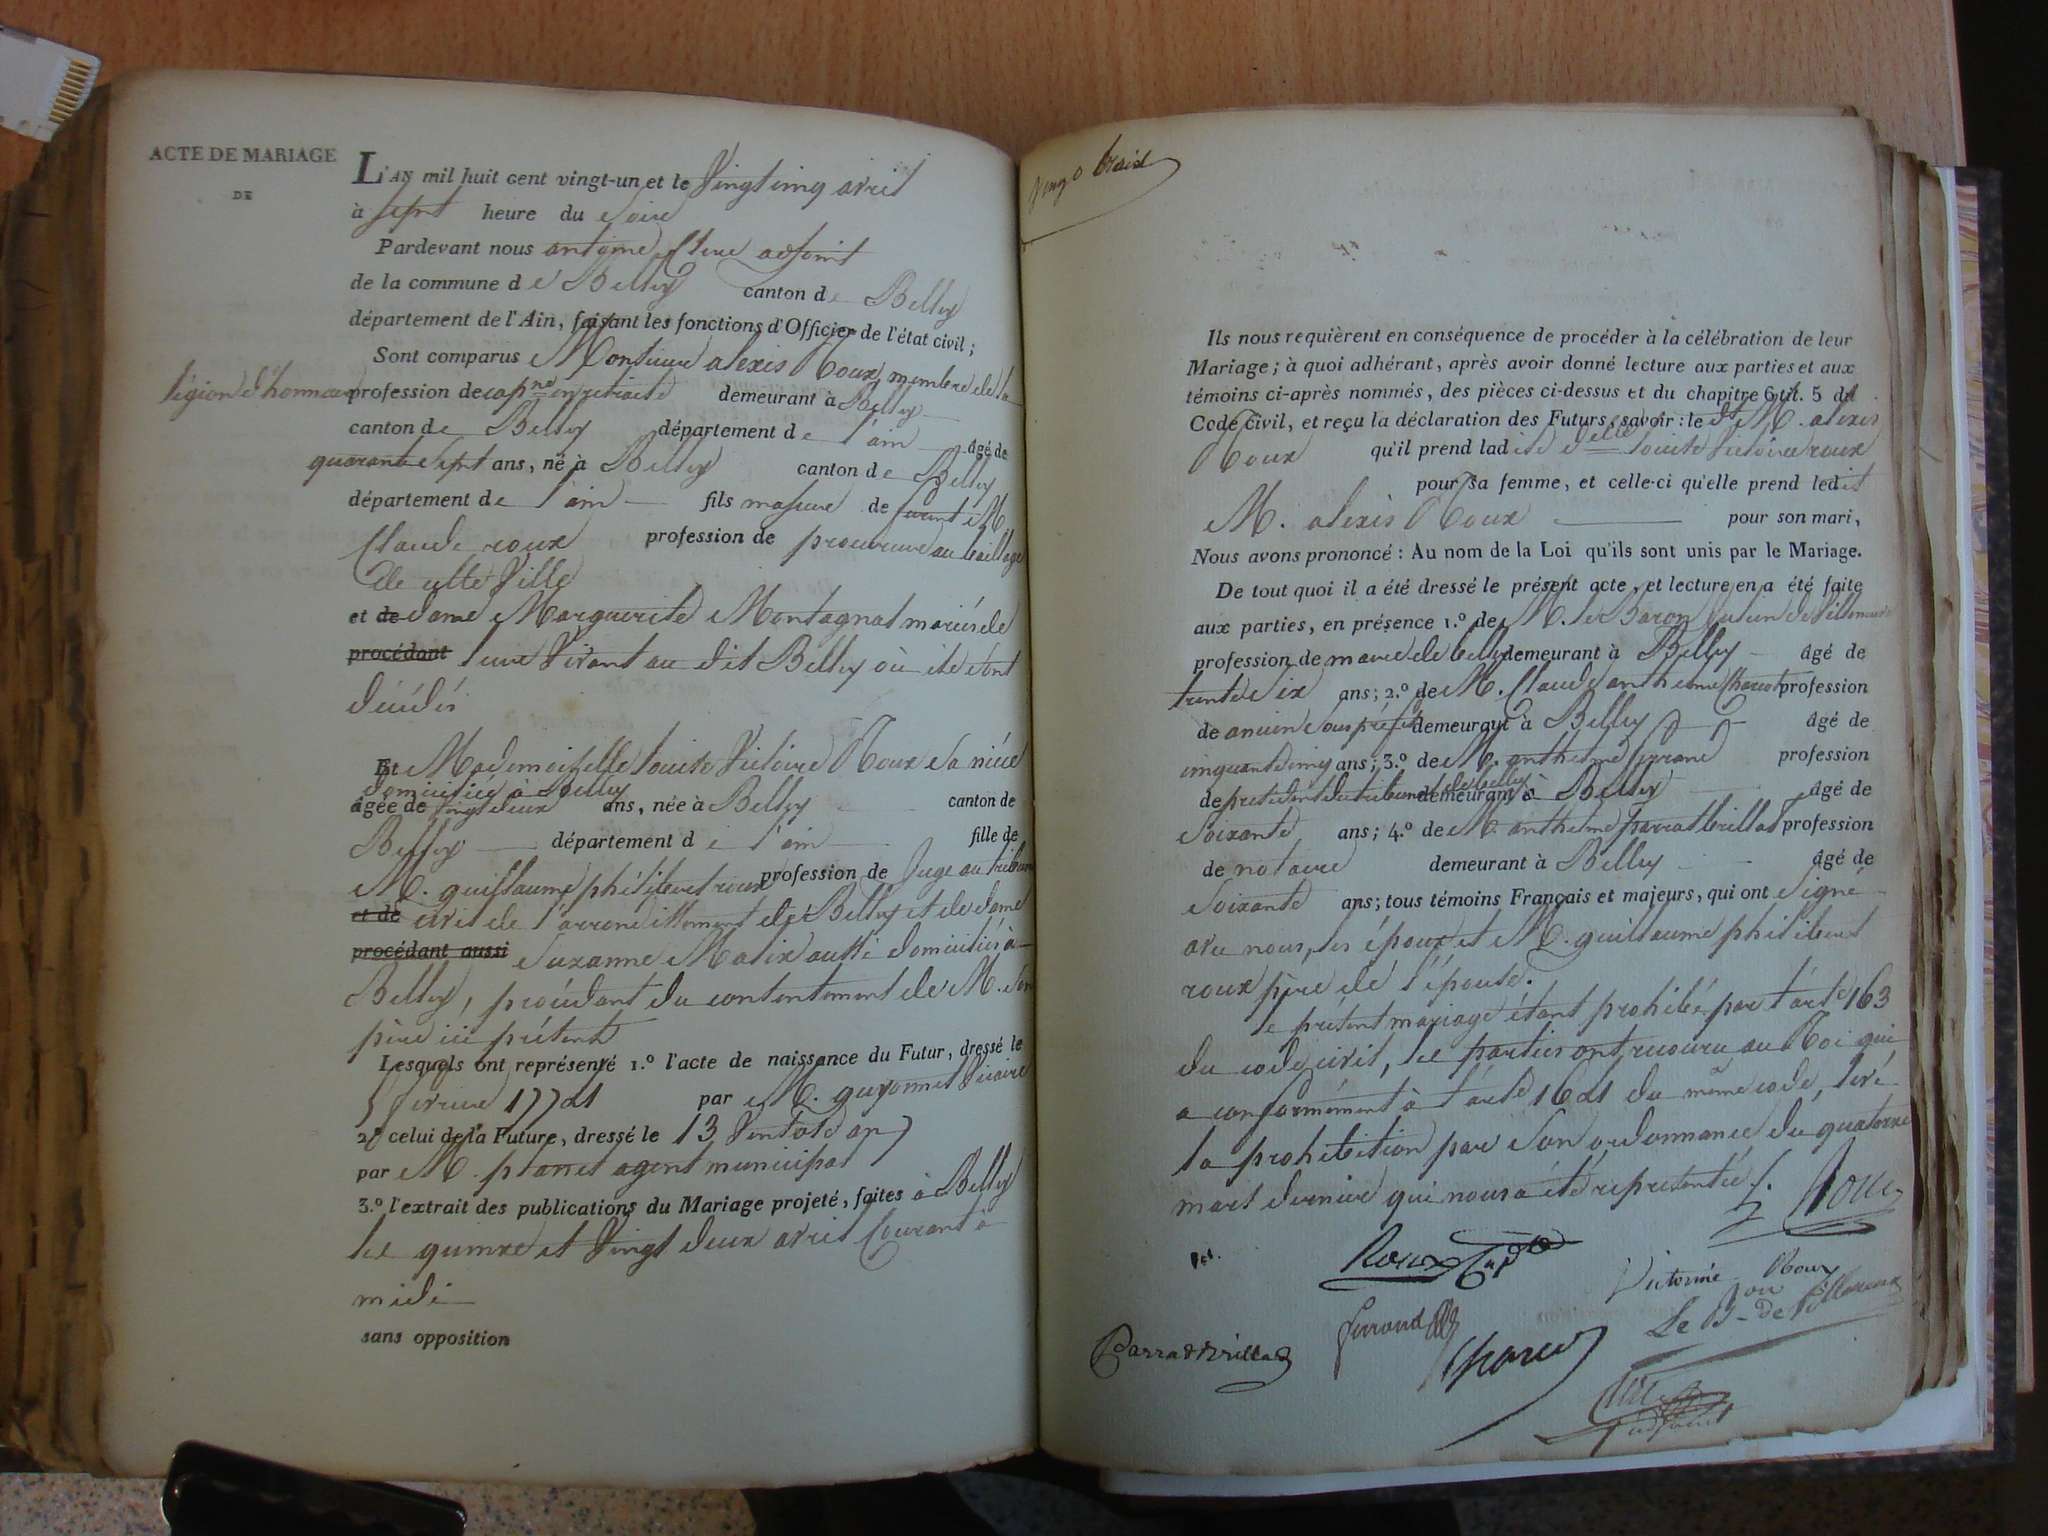 ACTE DE MARIAGE
DE
L'AN mil huit cent vingt-un et le Vingt cinq avril
à sept heure du Soire
Pardevant nous antoine Clerc adjoint
de la commune de Belley canton de Belley
département de l'Ain, faisant les fonctions d'Officier de l'état civil;
Sont comparus Monsieur alexis Roux, membre de la
légion d'honneur profession de capne en retraite demeurant à Belley
canton de Belley département de l'ain âgé de
quarante Sept ans, né à Belley canton de Belley
département de l'ain fils majeur de furent M.
Claude roux profession de procureur au baillage
de cette Ville
et de dame Marguerite Montagnat mariés de
procédant leur Vivant au dit Belley où ils sont
décédés
Et Mademoiselle Louise Victoire Roux Sa nièce
domiciliée à Belley
âgée de vingt deux ans, née à Belley canton de
Belley département de l'ain fille de
M. guillaume philibert roux profession de Juge au tribunal
et de civil de l'arrondissement de Belley et de dame
procédant aussi Suzanne Matix aussi domiciliés à
Belley, procédant du contentement de M. Son
père ici présent
Lesquels ont représenté 1.º l'acte de naissance du Futur, dressé le
5 février 1774 par M. guyonnet Vicaire
2.º celui de la Future, dressé le 13 Ventose an 7
par M. planet agent municipal
3.º l'extrait des publications du Mariage projeté, faites à Belley
les quinze et Vingt deux avril Courant à
midi
sans opposition
Ils nous requièrent en conséquence de procéder à la célébration de leur
Mariage; à quoi adhérant, après avoir donné lecture aux parties et aux
témoins ci-après nommés, des pièces ci-dessus et du chapitre 6 tit. 5 du
Code civil, et reçu la déclaration des Futurs, savoir: le dt M. alexis
Roux qu'il prend ladite delle Louise Victoire roux
pour sa femme, et celle-ci qu'elle prend ledit
M. alexis Roux pour son mari,
Nous avons prononcé: Au nom de la Loi qu'ils sont unis par le Mariage.
De tout quoi il a été dressé le présent acte, et lecture en a été faite
aux parties, en présence 1.º de M. le Baron de Villeneuve
profession de maire de belley demeurant à Belley âgé de
trente Six ans; 2.º de M. Claude anthelme Charcot profession
de ancien Sous préfet demeurant à Belley âgé de
cinquante cinq ans; 3.º de M. anthelme profession
de président du tribunal de belley demeurant à Belley âgé de
Soixante ans; 4.º de M. anthelme parrat brillat profession
de notaire demeurant à Belley âgé de
Soixante ans; tous témoins Français et majeurs, qui ont Signé
avec nous, les époux et M. guillaume philibert
roux père de l'épouse.
le présent mariage étant prohibé par l'arte 163
du code civil, les parties ont recouru au Roi qui
a conformément à l'arte 164 du même code, levé
la prohibition par Son ordonnance du quatorze
mars dernier qui nous a été représentée.
Roux
Roux
Victoire Roux
Le B. de Villeneuve
Parrat Brillat
adjoint